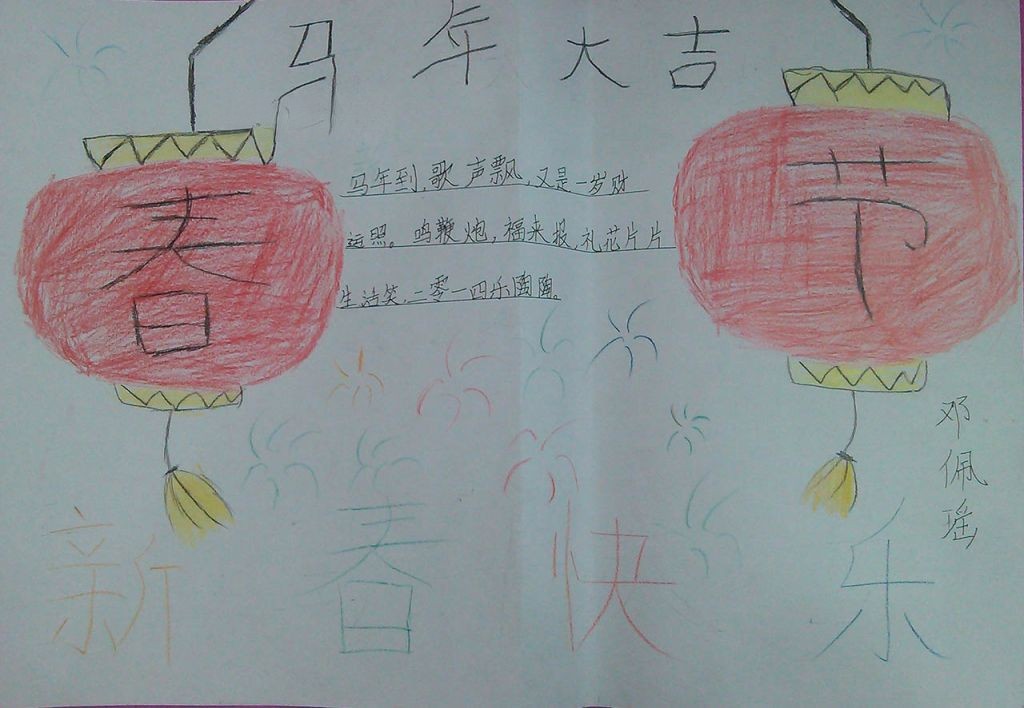 马年大吉
春节
马年到,歌声飘,又是一岁财
运照。鸣鞭炮,福来报,礼花片片
生活笑,二零一四乐陶陶。
邓佩瑶
新春快乐